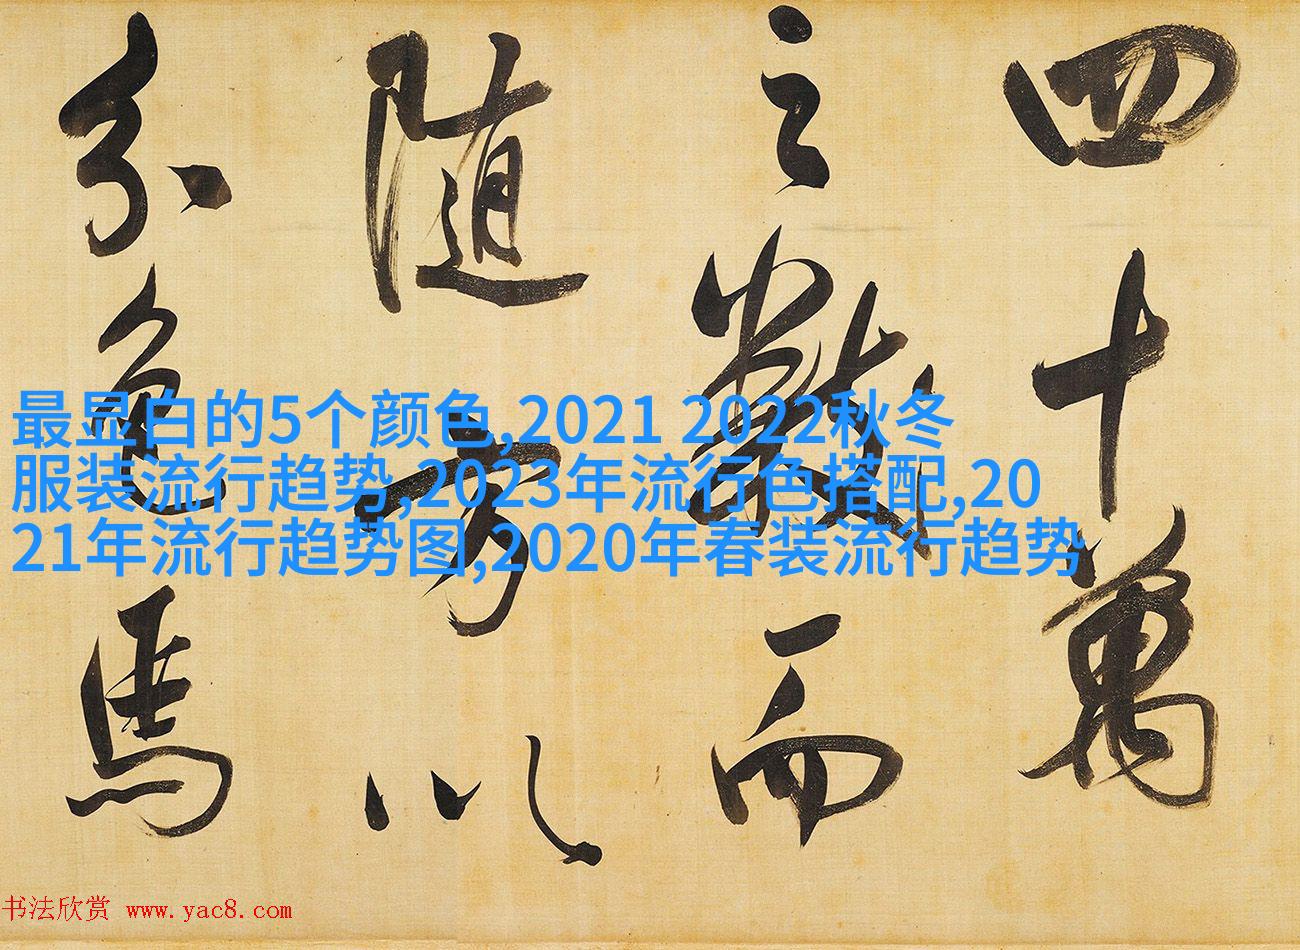 四十萬
之數而
隨方以
分色馬
最显白的5个颜色,2021 2022秋冬
服装流行趋势,2023年流行色搭配,20
21年流行趋势图,2020年春装流行趋势
书法欣赏 www.yac8.com